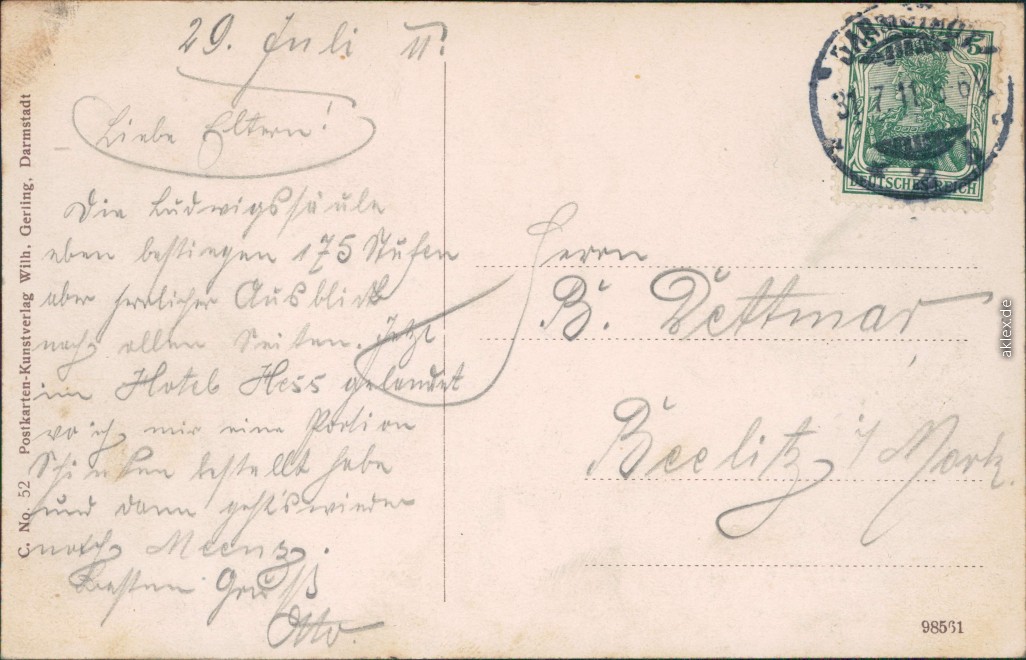 29. Juli 11.
Liebe Eltern!
Die Ludwigssäule
eben bestiegen 175 Stufen
aber herrlicher Ausblick
nach allen Seiten. Jetzt
im Hotel Hess gelandet
wo ich mir eine Portion
Schinken bestellt habe
und dann geht's wieder
nach Meenz.
Besten Gruß
Otto.
Herrn
B. Dettmar
Beelitz i/Mark.
DARMSTADT
31.7.11.
2
DEUTSCHES REICH
5
C. No. 52 Postkarten-Kunstverlag Wilh. Gerling, Darmstadt
98561
aklex.de